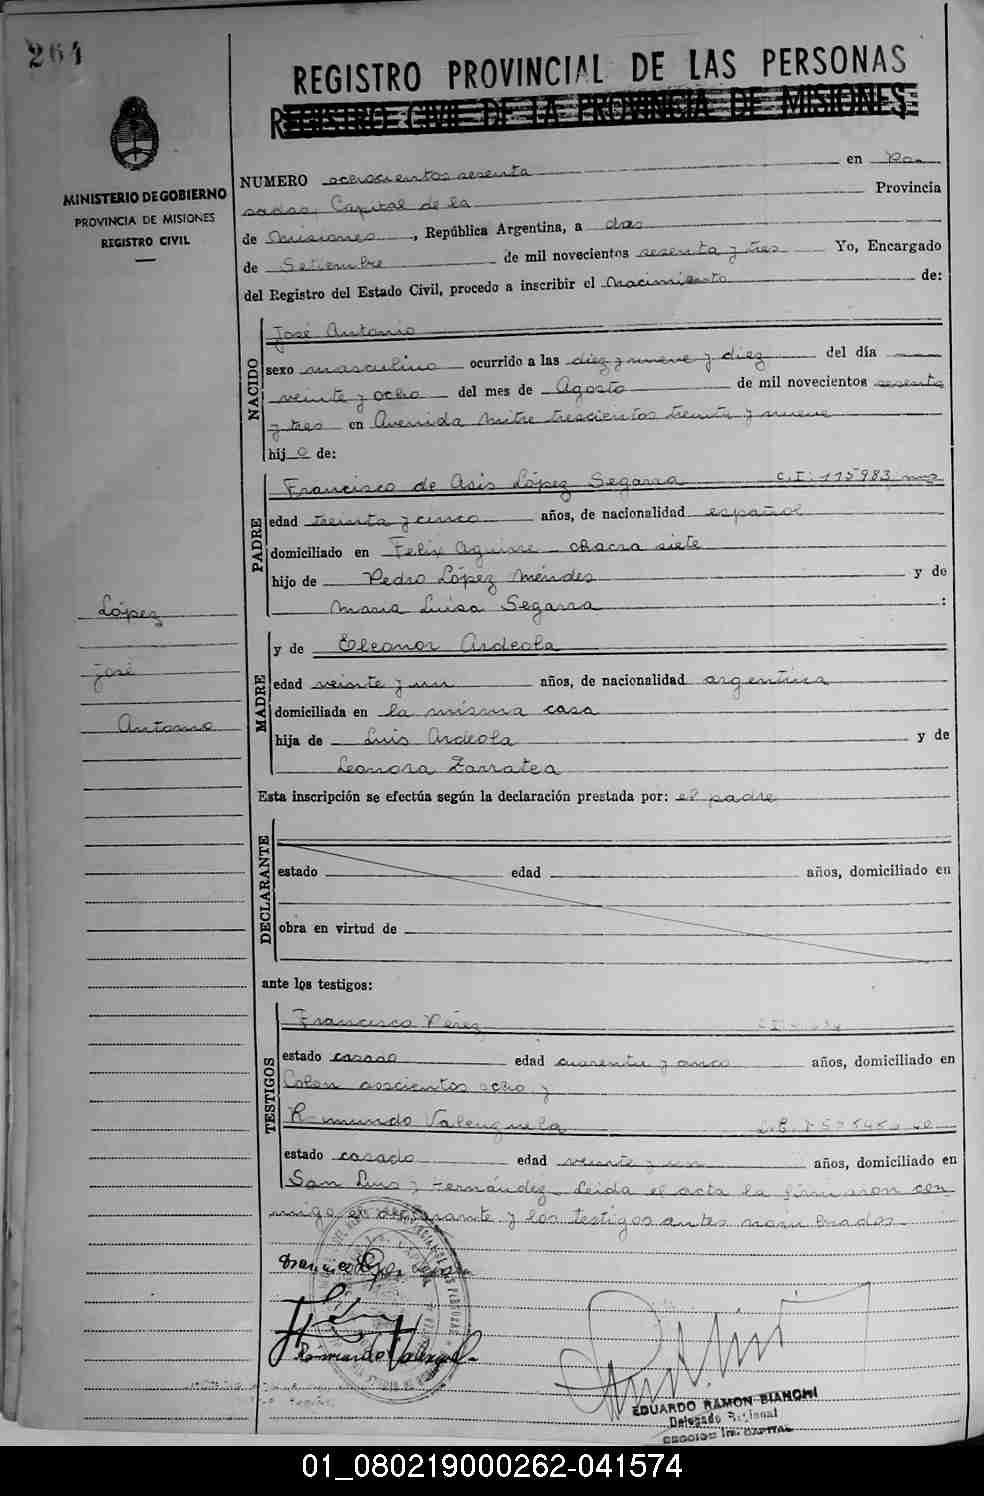 264
REGISTRO PROVINCIAL DE LAS PERSONAS
REGISTRO CIVIL DE LA PROVINCIA DE MISIONES
MINISTERIO DE GOBIERNO
PROVINCIA DE MISIONES
REGISTRO CIVIL
NUMERO ochocientos sesenta en Po
sadas, Capital de la Provincia
de Misiones, República Argentina, a dos
de Setiembre de mil novecientos sesenta y tres Yo, Encargado
del Registro del Estado Civil, procedo a inscribir el Nacimiento de:
NACIDO
José Antonio
sexo masculino ocurrido a las diez y nueve y diez del día
veinte y ocho del mes de Agosto de mil novecientos sesenta
y tres en Avenida Mitre trescientos treinta y nueve
hij o de:
PADRE
Francisco de Asis López Segarra C.I: 115983
edad treinta y cinco años, de nacionalidad español
domiciliado en Felix Aguirre - chacra siete
hijo de Pedro López Méndes y de
Maria Luisa Segarra :
López
José
Antonio
MADRE
y de Eleonor Ardeola
edad veinte y un años, de nacionalidad argentina
domiciliada en la misma casa
hija de Luis Ardeola y de
Leonora Zarratea
Esta inscripción se efectúa según la declaración prestada por: el padre
DECLARANTE
estado edad años, domiciliado en
obra en virtud de
ante los testigos:
TESTIGOS
Francisco Pérez
estado casado edad cuarenta y cinco años, domiciliado en
Colon doscientos ocho y
Raimundo Valenzuela
estado casado edad veinte y un años, domiciliado en
San Luis y Hernández. Leida el acta la firmaron con
migo el declarante y los testigos antes nombrados.
Raimundo Valenzuela
EDUARDO RAMON BIANCHI
Delegado Regional
CAPITAL
01_080219000262-041574